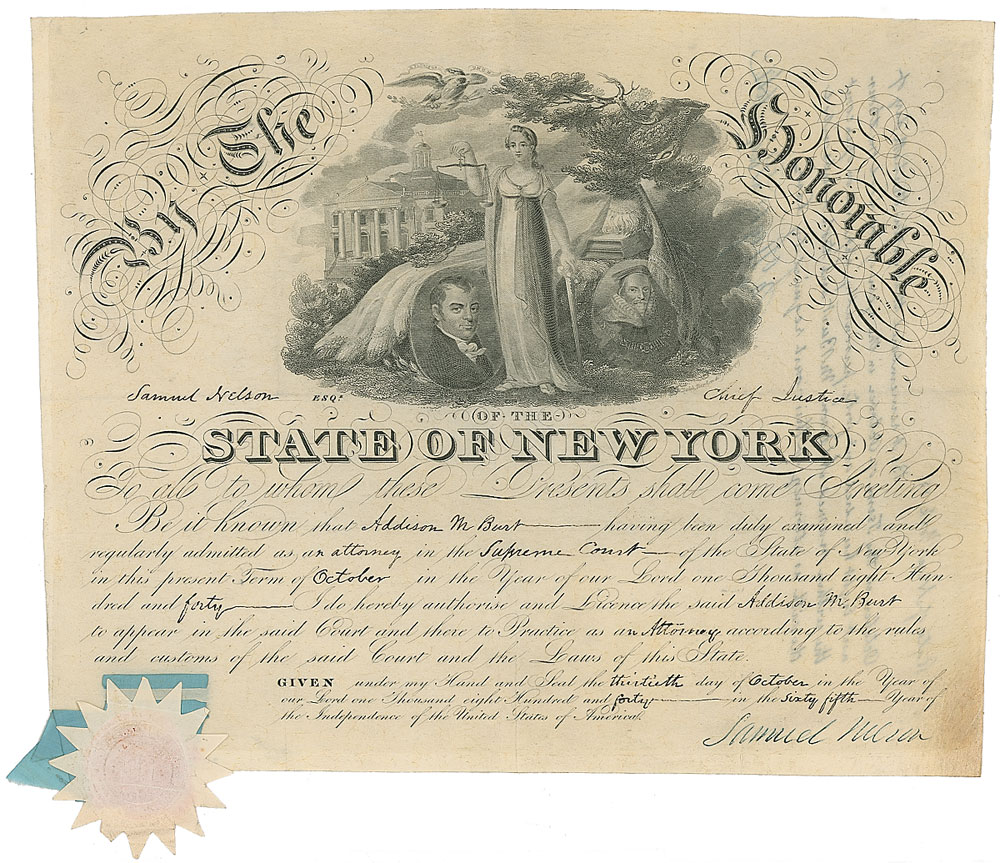 By The Honorable
Samuel Nelson ESQr. Chief Justice
OF THE
STATE OF NEW YORK
To all to whom these Presents shall come Greeting
Be it Known, that Addison M. Burt having been duly examined and
regularly admitted as an attorney in the Supreme Court of the State of New York
in this present Term of October in the Year of our Lord one Thousand eight Hun-
dred and forty I do hereby authorise and Licence the said Addison M. Burt
to appear in the said Court and there to Practice as an Attorney according to the rules
and customs of the said Court and the Laws of this State.
GIVEN under my Hand and Seal the thirtieth day of October in the Year of
our Lord one Thousand eight Hundred and forty in the Sixty fifth Year of
the Independence of the United States of America.
Samuel Nelson